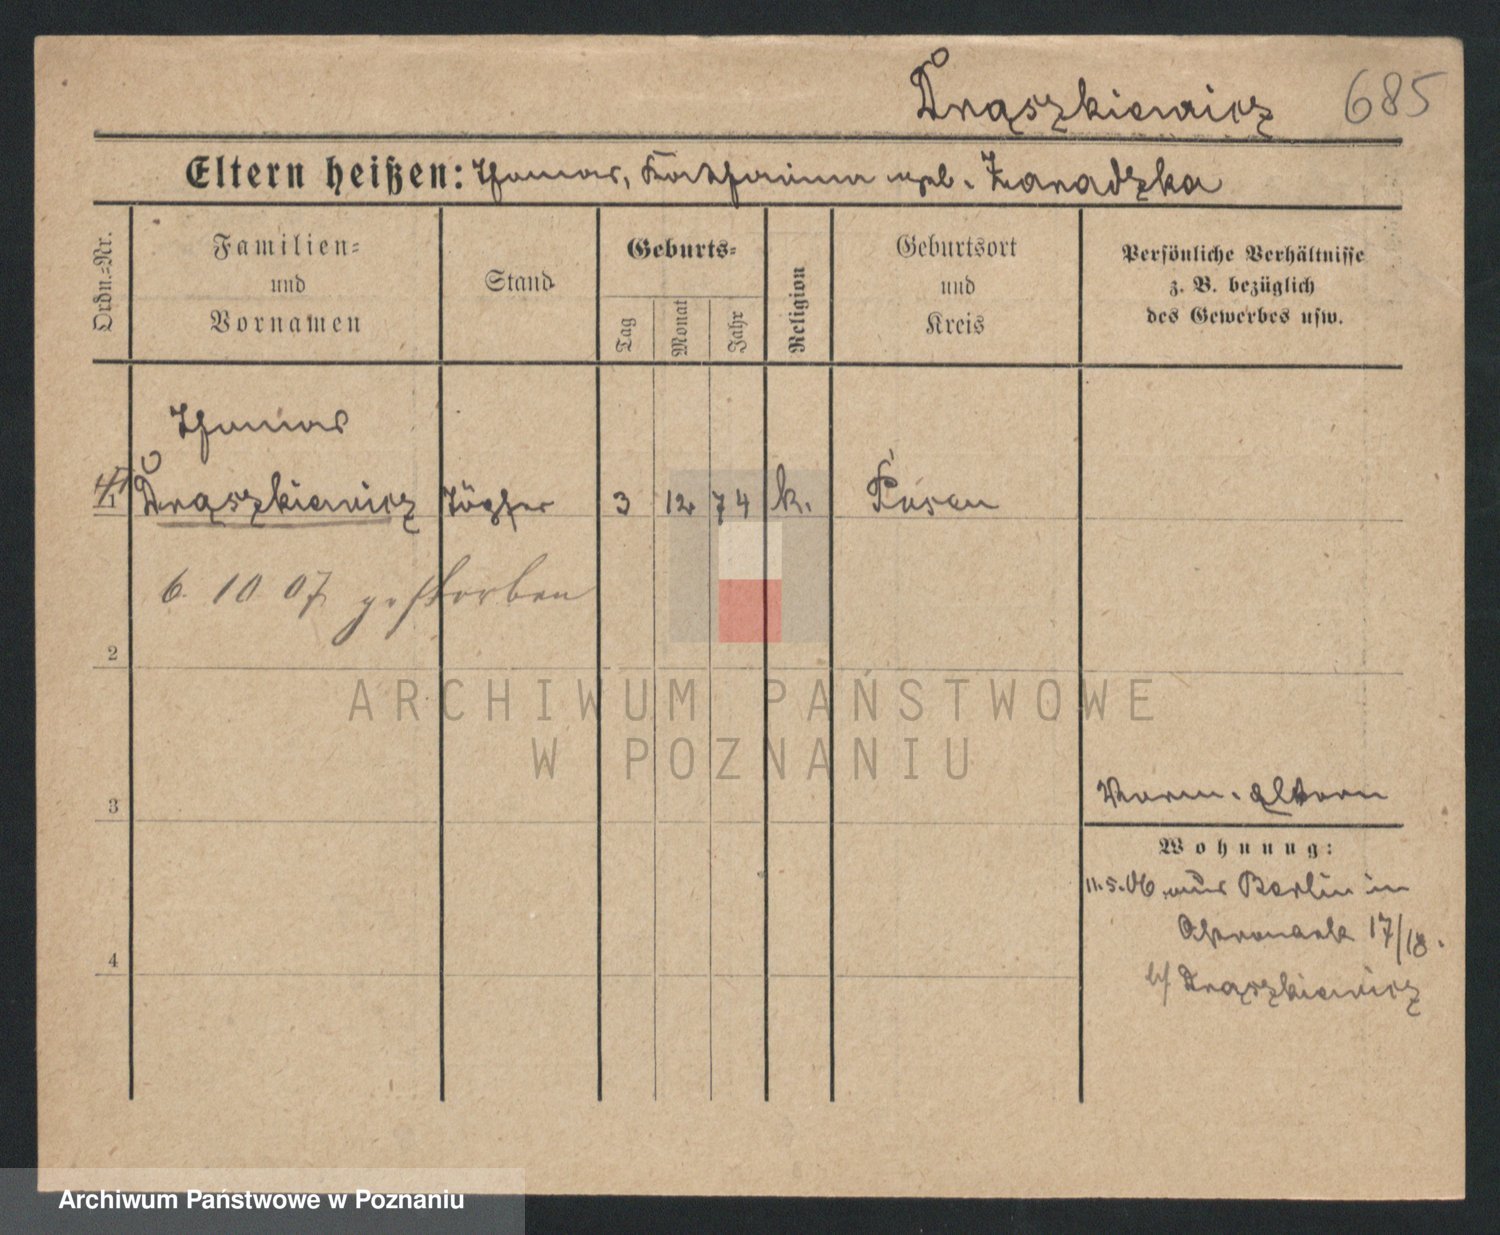 Drąszkiewicz 685
Eltern heißen: Thomas, Katharina geb. Zawadzka
Ordn.-Nr.
Familien-
und
Vornamen
Stand
Geburts-
Tag
Monat
Jahr
Religion
Geburtsort
und
Kreis
Persönliche Verhältnisse
z. B. bezüglich
des Gewerbes usw.
Thomas
1 Drąszkiewicz Töpfer 3 12 74 k. Posen
6. 10 07 gestorben
2
ARCHIWUM PAŃSTWOWE
W POZNANIU
3
Eltern
Wohnung:
11.5.06 aus Berlin in
17/18.
b/ Drąszkiewicz
4
Archiwum Państwowe w Poznaniu